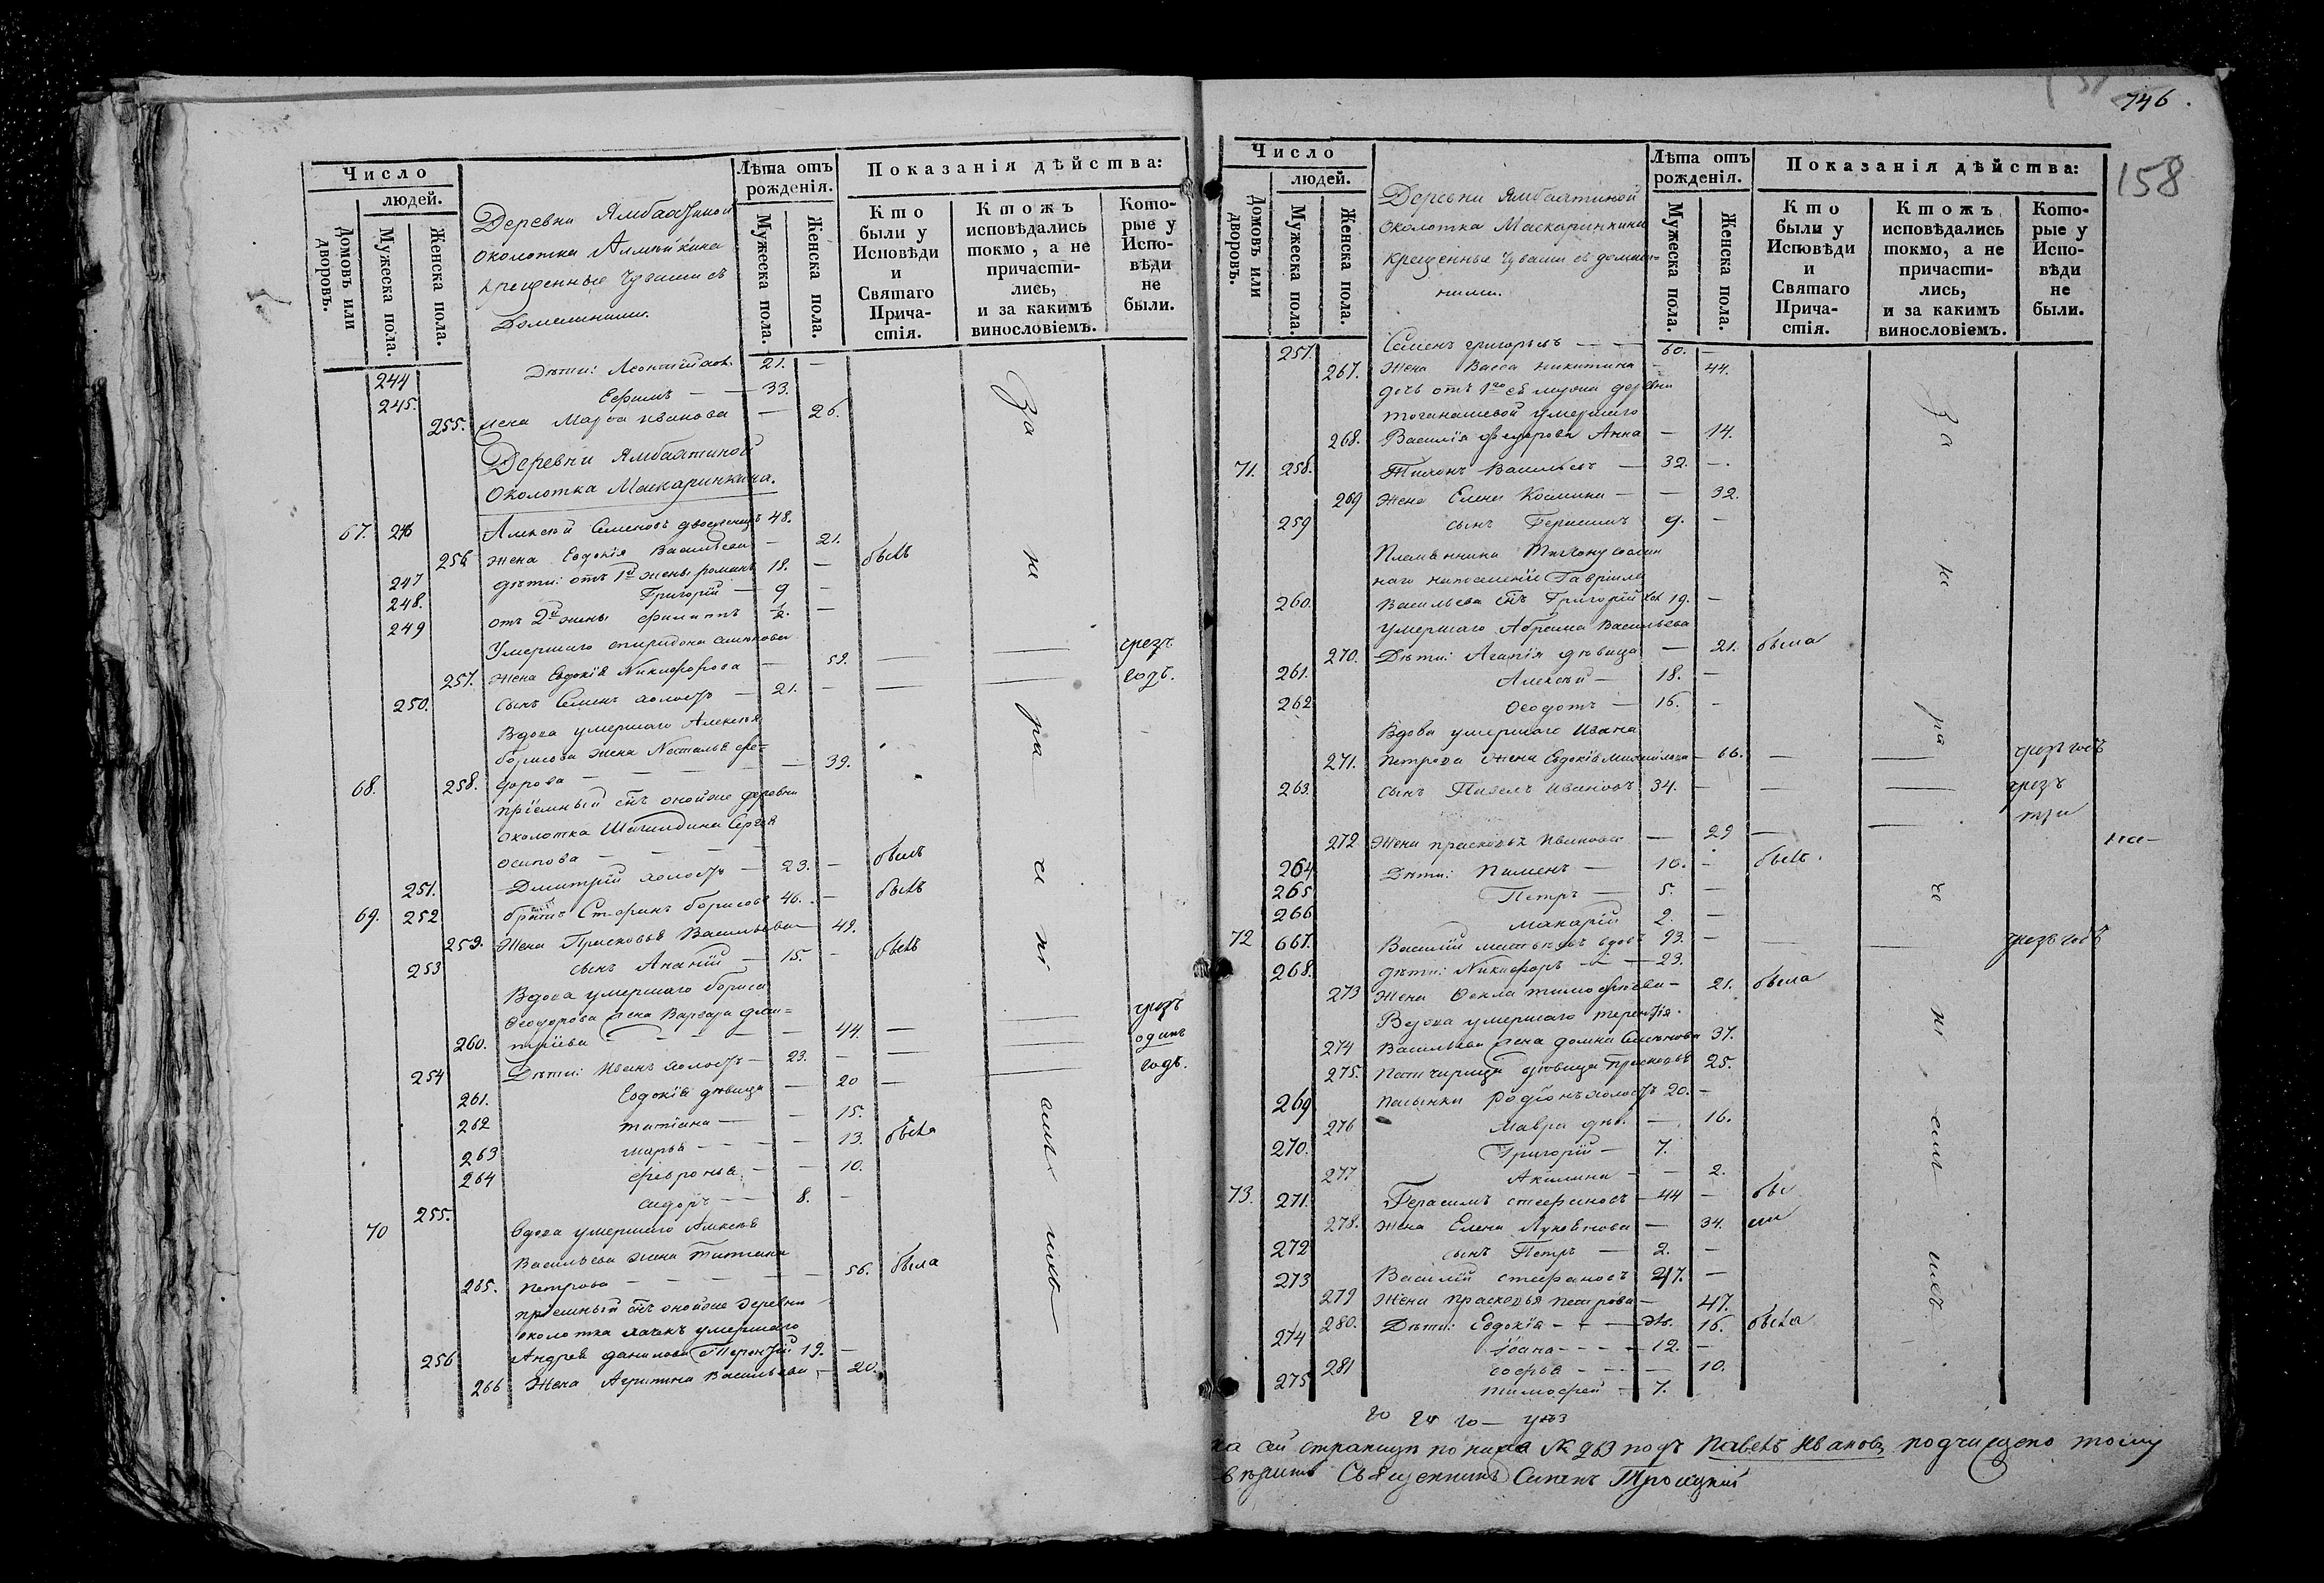 746.
158
Число
людей.
Домовъ или дворовъ.
Мужеска пола.
Женска пола.
Деревни Ямбахтиной
околотка Алмѣкина
крещенные Чуваши съ
домашними.
Лѣта отъ рожденія.
Мужеска пола.
Женска пола.
Показанія дѣйства:
Кто были у Исповѣди и Святаго Прича-стія.
Ктожъ исповѣдались токмо, а не причасти-лись, и за какимъ винословіемъ.
Кото-рые у Испо-вѣди не были.
244 Дѣти: Леонтій хол. 21. —
245. Ефимъ — 33.
255. жена Марѳа Иванова — 26.
Деревни Ямбахтиной
Околотка Маскаринкина.
67. 246 Алексѣй Семеновъ двоеженецъ 48.
256 жена Евдокія Васильева — 21.
247 дѣти: отъ 1й жены Романъ 18. — былъ
248. Григорій — 9 —
249 отъ 2й жены Филиппъ ½. —
Умершаго Спиридона Семенова
257. жена Евдокія Никифорова — 59. — — чрезъ
250. сынъ Семенъ холостъ — 21. — — — годъ.
Вдова умершаго Алексѣя
Борисова жена Наталья Ѳе=
68. 258. дорова — — — — 39.
пріемный сынъ оной же деревни
околотка Шагилдина Сергѣя
Осипова — — —
251. Дмитрій холостъ — 23. — былъ
69. 252 братъ Стефанъ Борисовъ 46. — былъ
259. Жена Прасковья Васильева — 49.
253 сынъ Ананій — 15. — былъ
Вдова умершаго Бориса
Ѳеодорова жена Варвара Дми=
260. тріева — — — — 44. — — чрезъ
254 Дѣти: Иванъ холостъ — 23. — — — одинъ
261. Евдокія дѣвица — 20 — — годъ.
262 Татіана — — 15.
263 Марья — — — 13. была
264 Февронья — — 10.
255. Сидоръ — — 8. —
70 Вдова умершаго Алексѣя
Васильева жена Татіана
265. Петрова — — — — 56. была
пріемный сынъ оной же деревни
околотка умершаго
256 Андрея Данилова Терентій 19. —
266 Жена Агрипина Васильева — 20.
За не ра че ні емъ
Число
людей.
Домовъ или дворовъ.
Мужеска пола.
Женска пола.
Деревни Ямбахтиной
околотка Маскаринкина
крещенные Чуваши съ домаш=
ними.
Лѣта отъ рожденія.
Мужеска пола.
Женска пола.
Показанія дѣйства:
Кто были у Исповѣди и Святаго Прича-стія.
Ктожъ исповѣдались токмо, а не причасти-лись, и за какимъ винословіемъ.
Кото-рые у Испо-вѣди не были.
257. Семенъ Григорьевъ — — 60. —
267. Жена Васса Никитина — 44.
дочь отъ 1го ея мужа деревни
Тоганашевой умершаго
268. Василія Ѳедорова Анна — 14.
71. 258. Тихонъ Васильевъ — 32. —.
269 Жена Елена Козмина — — 32.
259 сынъ Герасимъ 9. —
Племянника Тихону
Гавріила
260. Васильева сынъ Григорій хол 19. —
Умершаго Абрама Васильева
270. Дѣти: Агапія дѣвица — 21. была
261. Алексѣй — 18. —
262 Ѳеодотъ — 16. —
Вдова умершаго Ивана
271. Петрова жена Евдокія Михайлова — 66. — — чрезъ годъ
263. сынъ Павелъ Ивановъ 34. — — — чрезъ
три
272 Жена Прасковья Иванова — 29 — —
264 Дѣти: Пименъ — 10. — былъ.
265 Петръ — 5. —
266 Макарій 2. —
72 667. Василій Матвѣевъ вдовъ 93. — — — чрезъ годъ
268. дѣти: Никифоръ — — 23.
273 Жена Ѳекла Тимофѣева — 21. была
Вдова умершаго Терентія
274 Васильева жена Домна Семенова 37.
275. Патчерица дѣвица Прасковья 25.
269 пасынки Родіонъ холостъ 20. —
276 Мавра дѣв. — 16.
270. Григорій — 7.
277 Акилина — — 2.
73. 271. Герасимъ Стефановъ — 44 — бы
278. Жена Елена Лукоянова — 34. ли
272 сынъ Петръ — 2. —
273 Василій Стефановъ 47. —
279 Жена Прасковья Петрова — 47.
280. Дѣти: Евдокія — — дѣв. 16. была
274 Іоана — — — 12. —
281 Софья — — — 10.
275 Тимофей — 7.
За не ра че ні емъ
на сей страницѣ по ниже № 263 подъ Павелъ Ивановъ подчищено тому
вѣрить Священникъ Симеонъ Троицкій